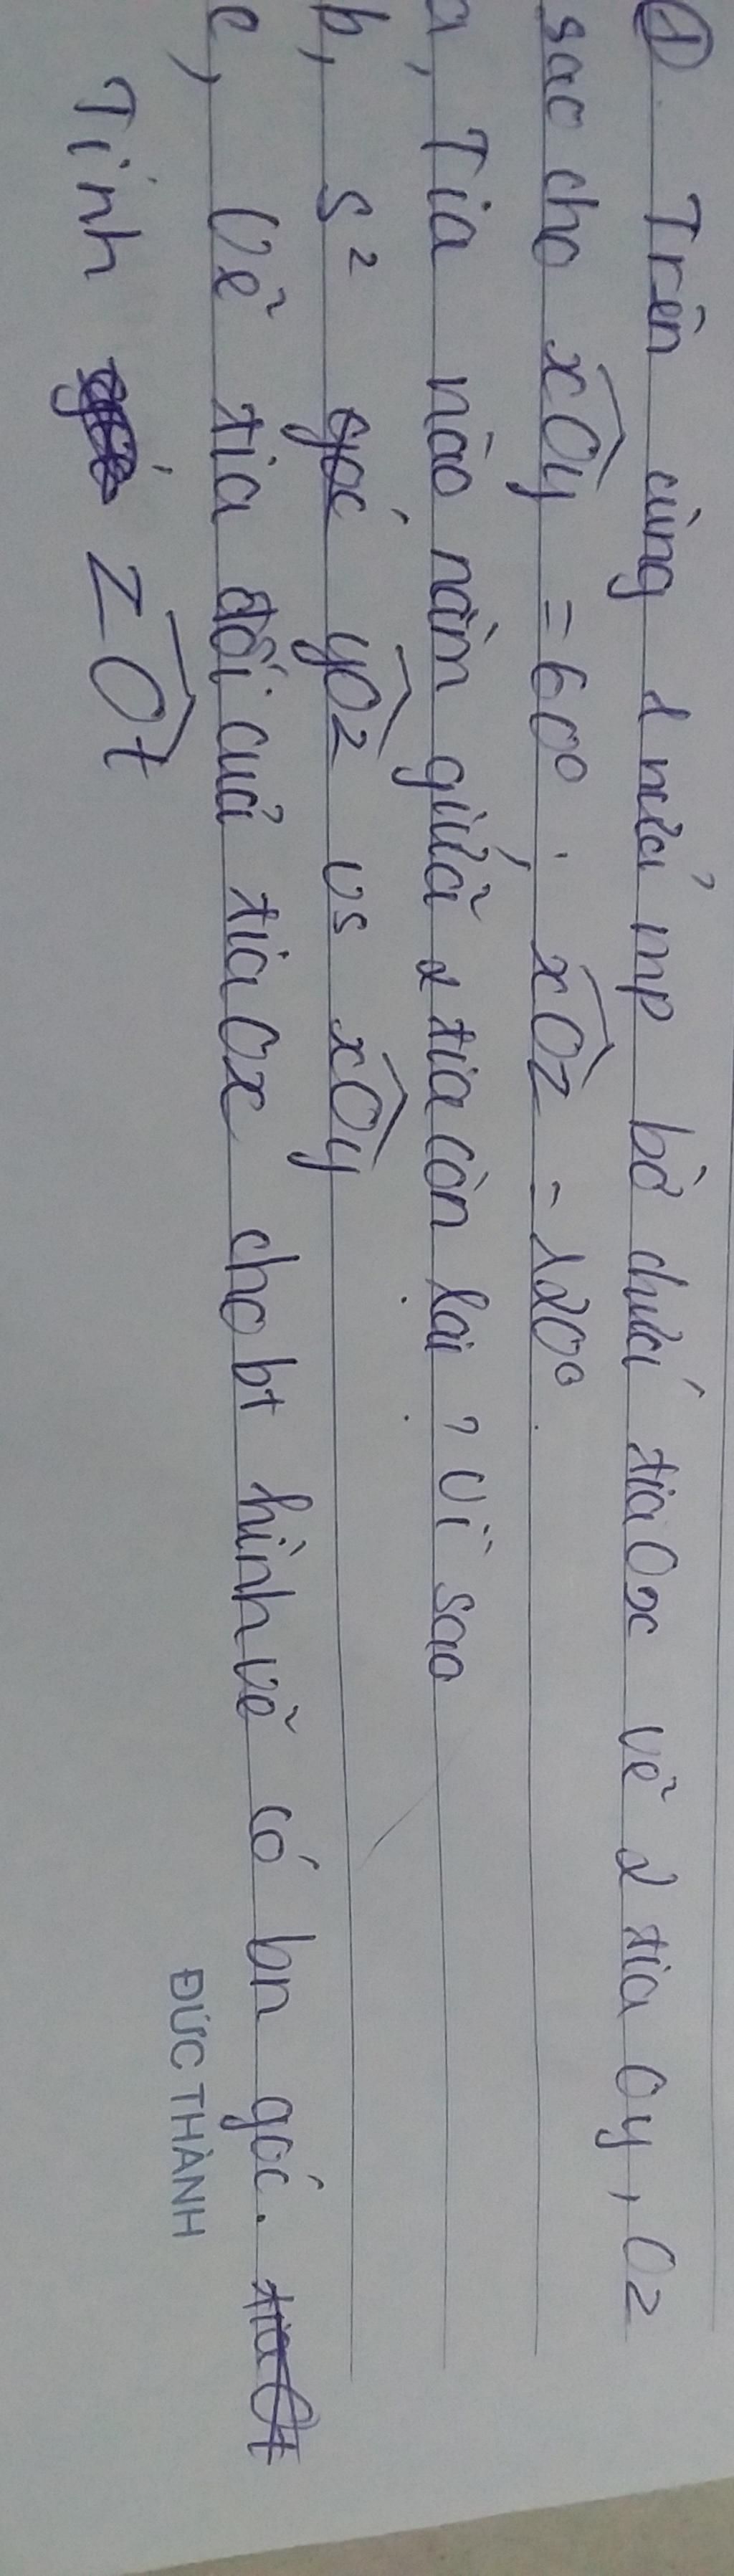 ① Trên cùng 1 nửa mp bờ chứa tia Ox vẽ 2 tia Oy, Oz
sao cho xOy = 60°; xOz = 120°.
a, Tia nào nằm giữa 2 tia còn lại? Vì sao
b, s² góc yOz vs xOy
c, Vẽ tia đối của tia Ox cho bt hình vẽ có bn góc.
Tính zOt
ĐỨC THÀNH